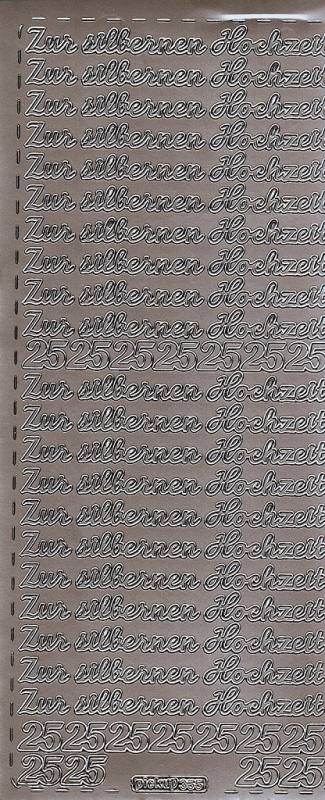 Zur silbernen Hochzeit
Zur silbernen Hochzeit
Zur silbernen Hochzeit
Zur silbernen Hochzeit
Zur silbernen Hochzeit
Zur silbernen Hochzeit
Zur silbernen Hochzeit
Zur silbernen Hochzeit
Zur silbernen Hochzeit
Zur silbernen Hochzeit
25 25 25 25 25 25 25
Zur silbernen Hochzeit
Zur silbernen Hochzeit
Zur silbernen Hochzeit
Zur silbernen Hochzeit
Zur silbernen Hochzeit
Zur silbernen Hochzeit
Zur silbernen Hochzeit
Zur silbernen Hochzeit
Zur silbernen Hochzeit
Zur silbernen Hochzeit
Zur silbernen Hochzeit
25 25 25 25 25 25 25
25 25 pickup 355 25 25